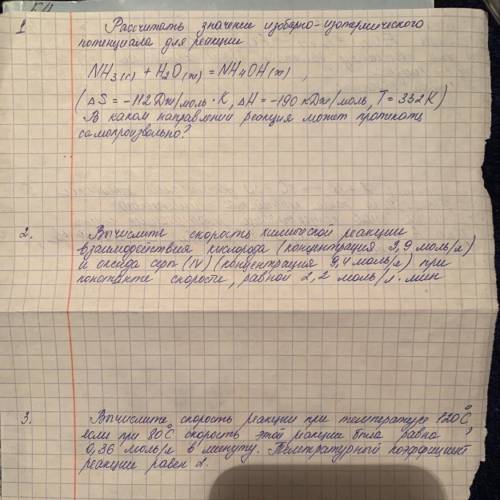 1 Рассчитать значение изобарно-изотермического
потенциала для реакции
NH3(г) + H2O(ж) = NH4OH(ж),
(ΔS = -112 Дж/моль·К, ΔH = -190 кДж/моль, T = 352 К)
В каком направлении реакция может протекать
самопроизвольно?
2. Вычислите скорость химической реакции
взаимодействия кислорода (концентрация 3,9 моль/л)
и оксида серы (IV) (концентрация 9,4 моль/л) при
константе скорости, равной 2,2 моль/л·мин
3. Вычислите скорость реакции при температуре 120°C,
если при 80°C скорость этой реакции была равна
0,36 моль/л в минуту. Температурный коэффициент
реакции равен 2.